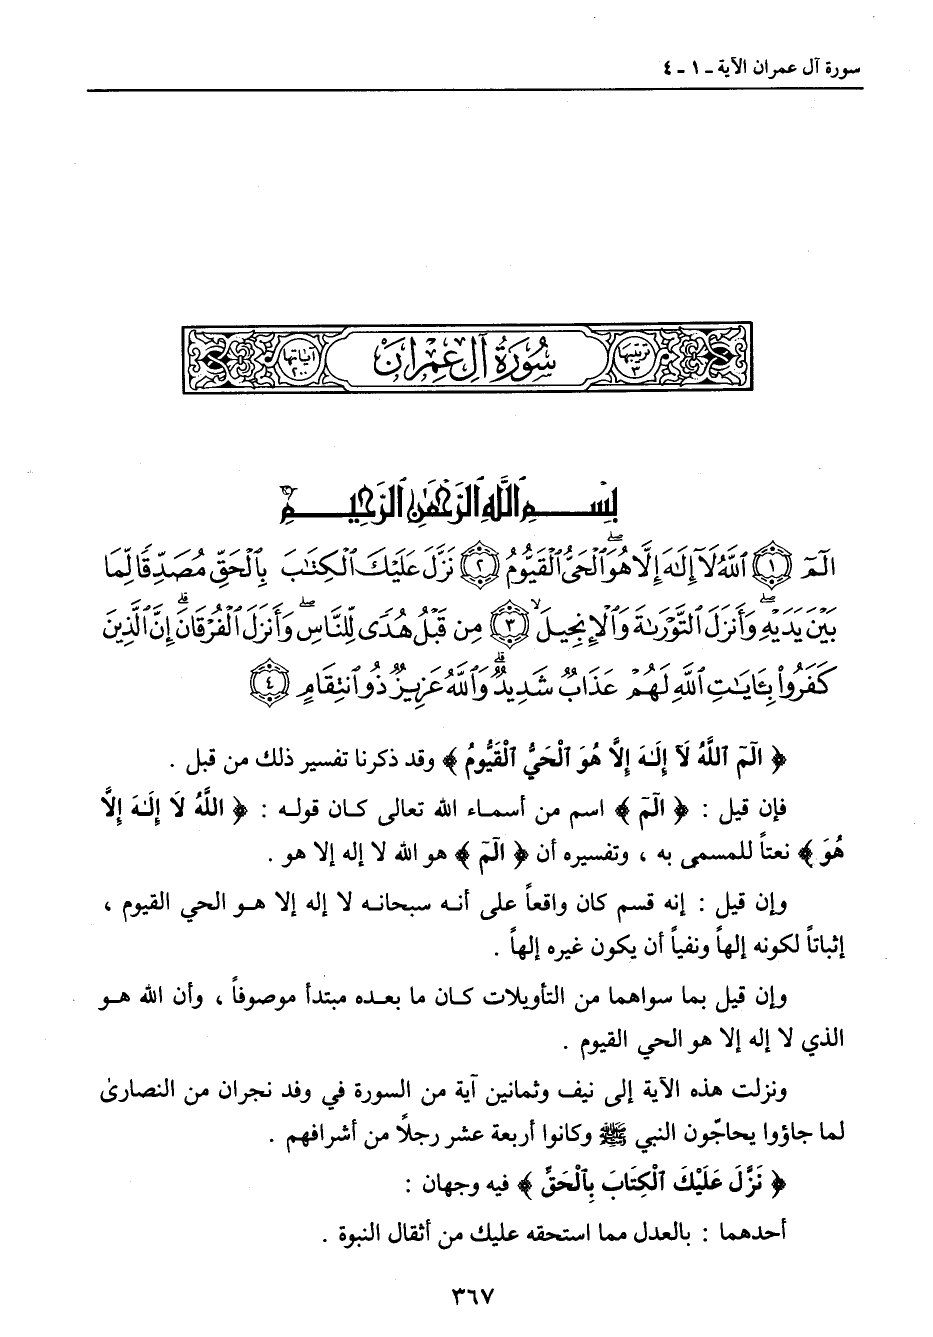 سورة آل عمران الآية ـ ١ ـ ٤
ترتيبها ٣ سُورَةُ آلِ عِمْرَان آياتها ٢٠٠
بِسْمِ ٱللَّهِ ٱلرَّحْمَٰنِ ٱلرَّحِيمِ
الٓمٓ ١ ٱللَّهُ لَآ إِلَٰهَ إِلَّا هُوَ ٱلْحَىُّ ٱلْقَيُّومُ ٢ نَزَّلَ عَلَيْكَ ٱلْكِتَٰبَ بِٱلْحَقِّ مُصَدِّقًا لِّمَا
بَيْنَ يَدَيْهِ ۖ وَأَنزَلَ ٱلتَّوْرَىٰةَ وَٱلْإِنجِيلَ ٣ مِن قَبْلُ هُدًى لِّلنَّاسِ ۖ وَأَنزَلَ ٱلْفُرْقَانَ ۗ إِنَّ ٱلَّذِينَ
كَفَرُوا۟ بِـَٔايَٰتِ ٱللَّهِ لَهُمْ عَذَابٌ شَدِيدٌ ۗ وَٱللَّهُ عَزِيزٌ ذُو ٱنتِقَامٍ ٤
﴿ الٓمٓ ٱللَّهُ لَآ إِلَٰهَ إِلَّا هُوَ ٱلْحَيُّ ٱلْقَيُّومُ ﴾ وقد ذكرنا تفسير ذلك من قبل .
فإن قيل : ﴿ الٓمٓ ﴾ اسم من أسماء الله تعالى كان قوله : ﴿ اللَّهُ لَا إِلَٰهَ إِلَّا
هُوَ ﴾ نعتاً للمسمى به ، وتفسيره أن ﴿ الٓمٓ ﴾ هو الله لا إله إلا هو .
وإن قيل : إنه قسم كان واقعاً على أنه سبحانه لا إله إلا هو الحي القيوم ،
إثباتاً لكونه إلهاً ونفياً أن يكون غيره إلهاً .
وإن قيل بما سواهما من التأويلات كان ما بعده مبتدأ موصوفاً ، وأن الله هو
الذي لا إله إلا هو الحي القيوم .
ونزلت هذه الآية إلى نيف وثمانين آية من السورة في وفد نجران من النصارىٰ
لما جاؤوا يحاجّون النبي ﷺ وكانوا أربعة عشر رجلاً من أشرافهم .
﴿ نَزَّلَ عَلَيْكَ ٱلْكِتَابَ بِٱلْحَقِّ ﴾ فيه وجهان :
أحدهما : بالعدل مما استحقه عليك من أثقال النبوة .
٣٦٧